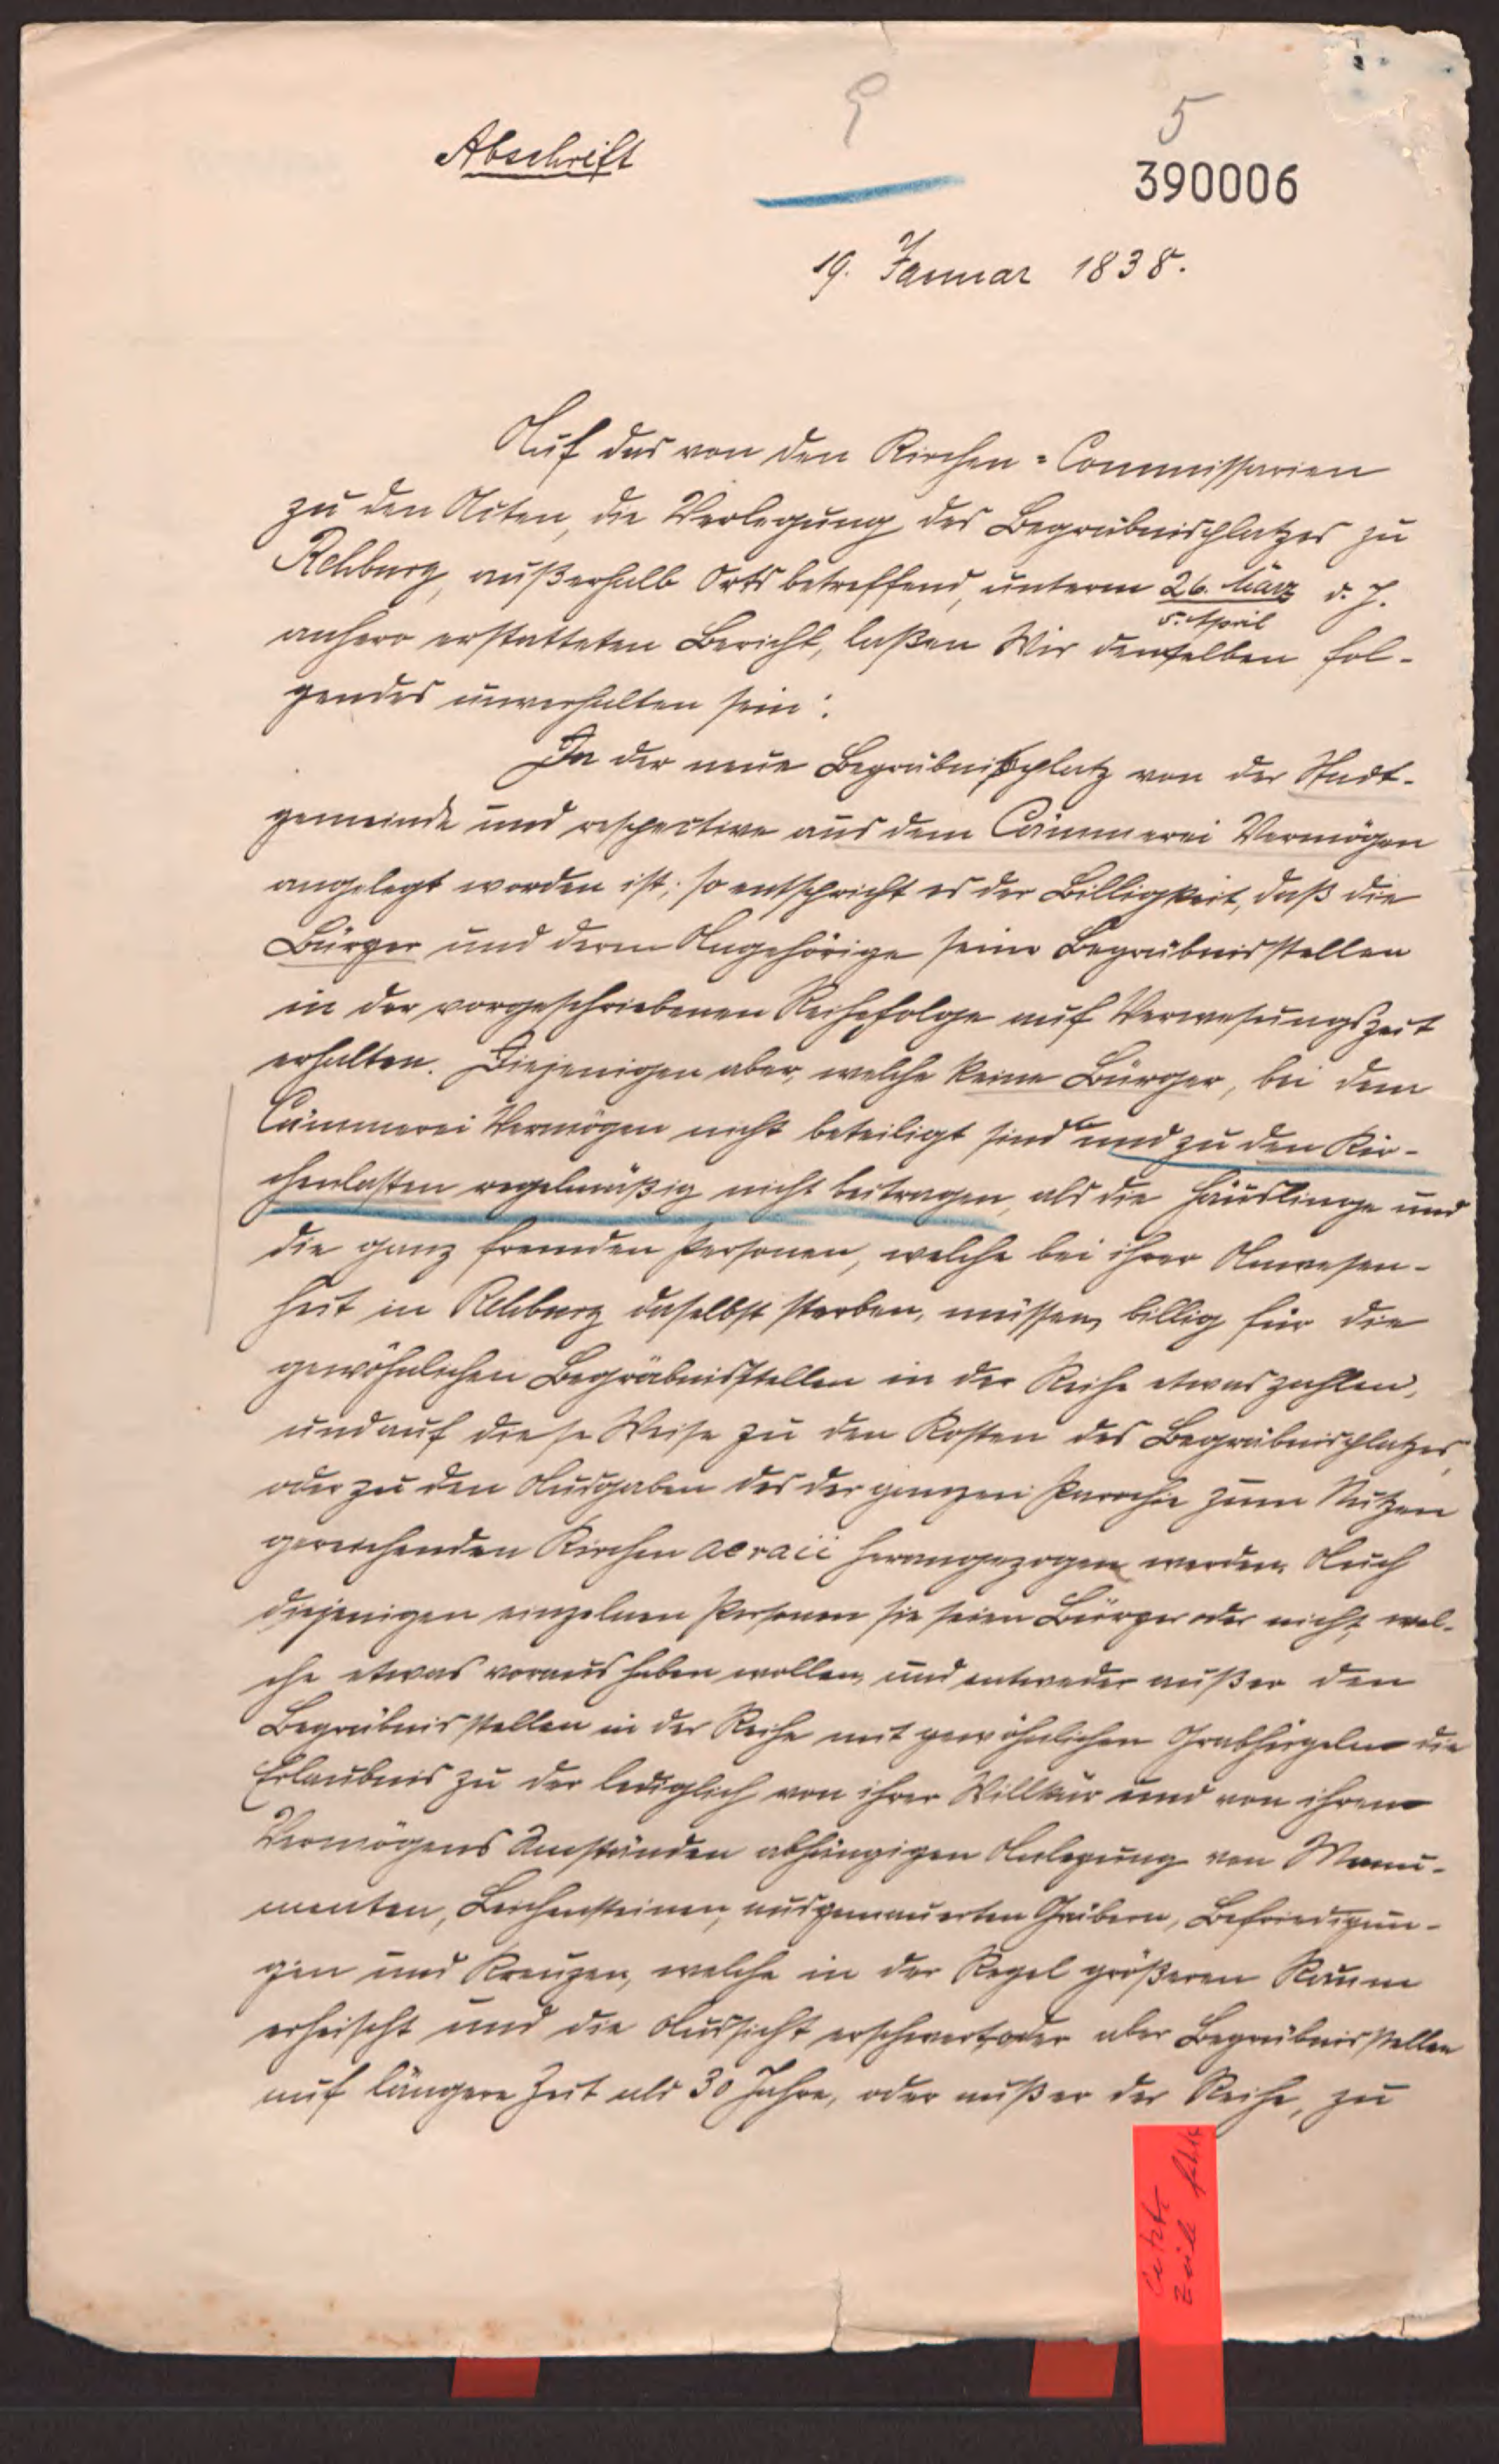 5
Abschrift
390006
19. Januar 1838.
Auf das von den Kirchen-Commissarien
zu den Acten, die Verlegung des Begräbnisplatzes zu
Rehburg, außerhalb Orts betreffend, unterm 26. März d. J.
5. April
anhero erstatteten Bericht, laßen Wir denselben fol-
gendes unverhalten sein:
Da der neue Begräbnisplatz von der Stadt-
gemeinde und respective aus dem Cämmerei Vermögen
angelegt worden ist, so entspricht es der Billigkeit, daß die
Bürger und deren Angehörige seine Begräbnisstellen
in der vorgeschriebenen Reihefolge auf Verwesungszeit
erhalten. Diejenigen aber, welche keine Bürger, bei dem
Cämmerei Vermögen nicht beteiligt sind und zu den Kir-
chenlasten regelmäßig nicht beitragen, als die Häuslinge und
die ganz fremden Personen, welche bei ihrer Anwesen-
heit in Rehburg daselbst sterben, müssen billig für die
gewöhnlichen Begräbnisstellen in der Reihe etwas zahlen,
und auf diese Weise zu den Kosten des Begräbnisplatzes,
oder zu den Ausgaben des der ganzen Parochie zum Nutzen
gereichenden Kirchen aeraii herangezogen werden. Auch
diejenigen einzelnen Personen sie seien Bürger oder nicht, wel-
che etwas voraus haben wollen, und entweder außer den
Begräbnisstellen in der Reihe mit gewöhnlichen Grabhügeln die
Erlaubnis zu der lediglich von ihrer Willkür und von ihren
Vermögens Umständen abhängigen Anlegung von Monu-
menten, Leichensteinen, ausgemauerten Gräbern, Befriedigun-
gen und Kreuzen, welche in der Regel größeren Raum
erheischt und die Aufsicht erschwert, oder aber Begräbnisstellen
auf längere Zeit als 30 Jahre, oder außer der Reihe, zu
letzte
Zeile fehlt